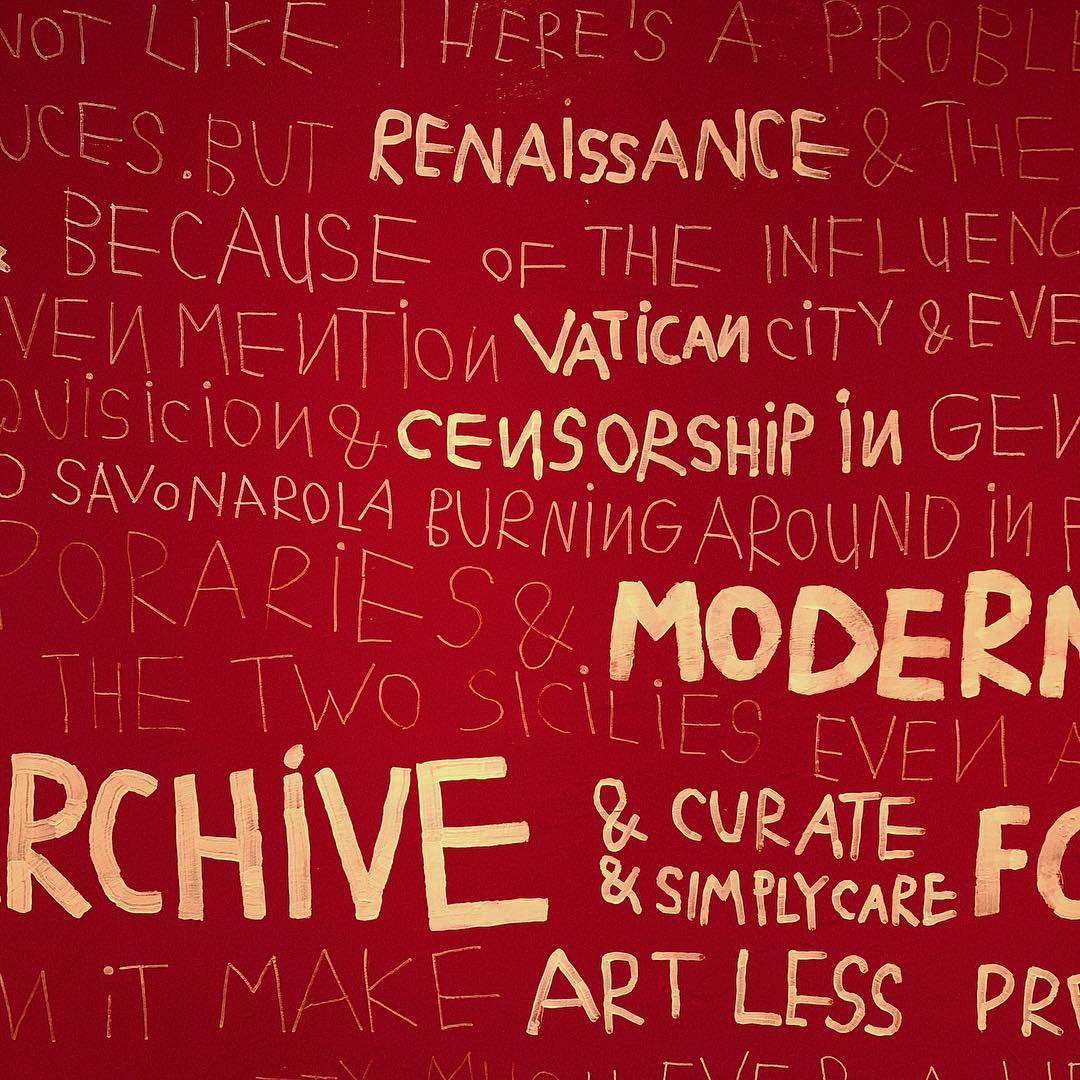 NOT LIKE THERE'S A PROBLE
UCES. BUT RENAISSANCE & THE
& BECAUSE OF THE INFLUENC
VEN MENTION VATICAN CITY & EVE
QUISICION & CENSORSHIP IN GEN
O SAVONAROLA BURNING AROUND IN F
PORARIES & MODERN
THE TWO SICILIES EVEN A
ARCHIVE & CURATE FO
& SIMPLY CARE
M IT MAKE ART LESS PRE
MUCH EVER A